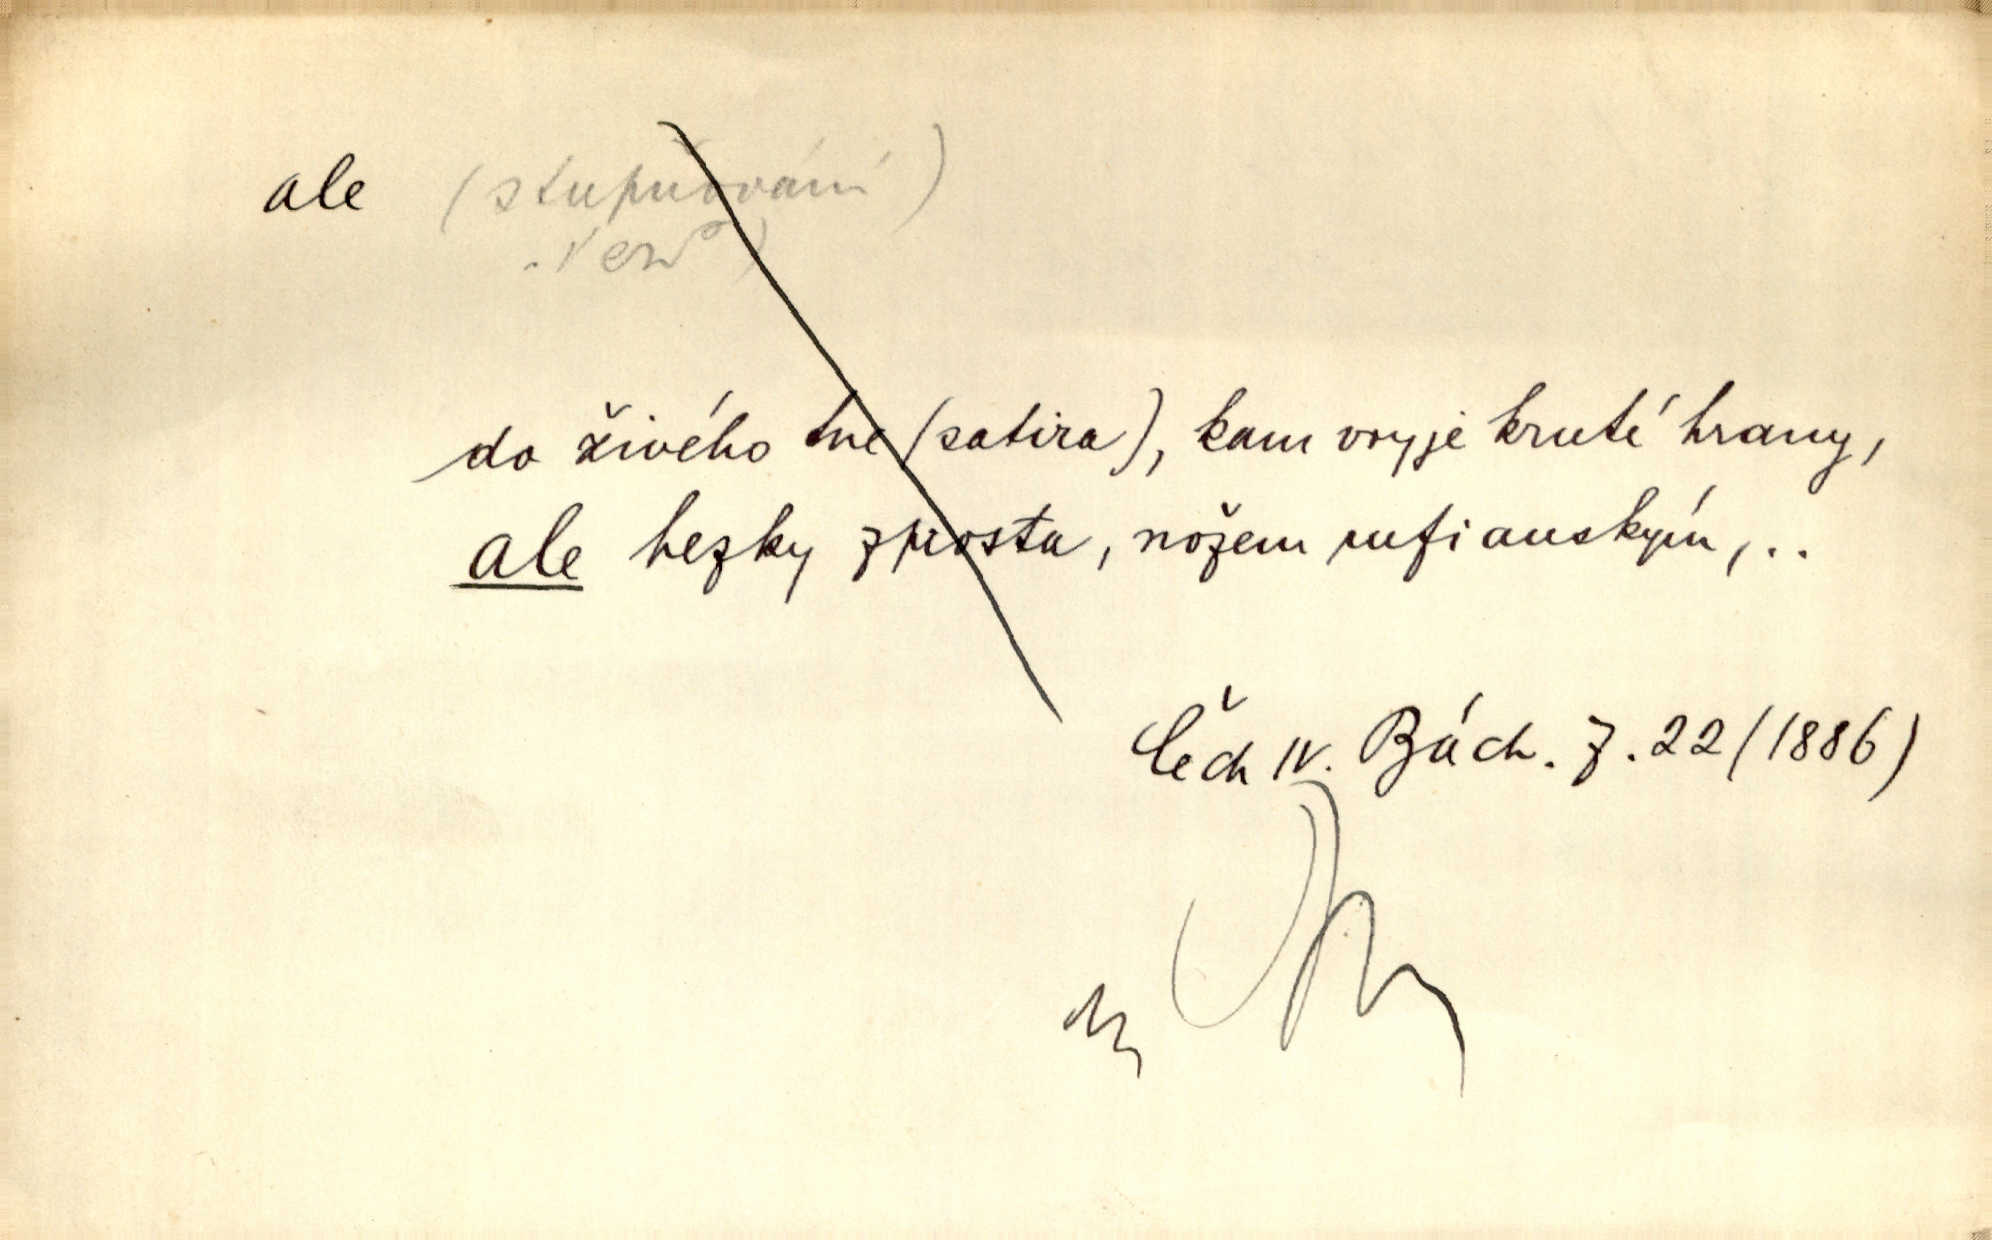 ale (stupňování)
do živého tne (satira), kam vryje kruté hrany,
ale hezky zprosta, nožem rufianským, ..
Čech IV. Bách. z. 22 (1886)